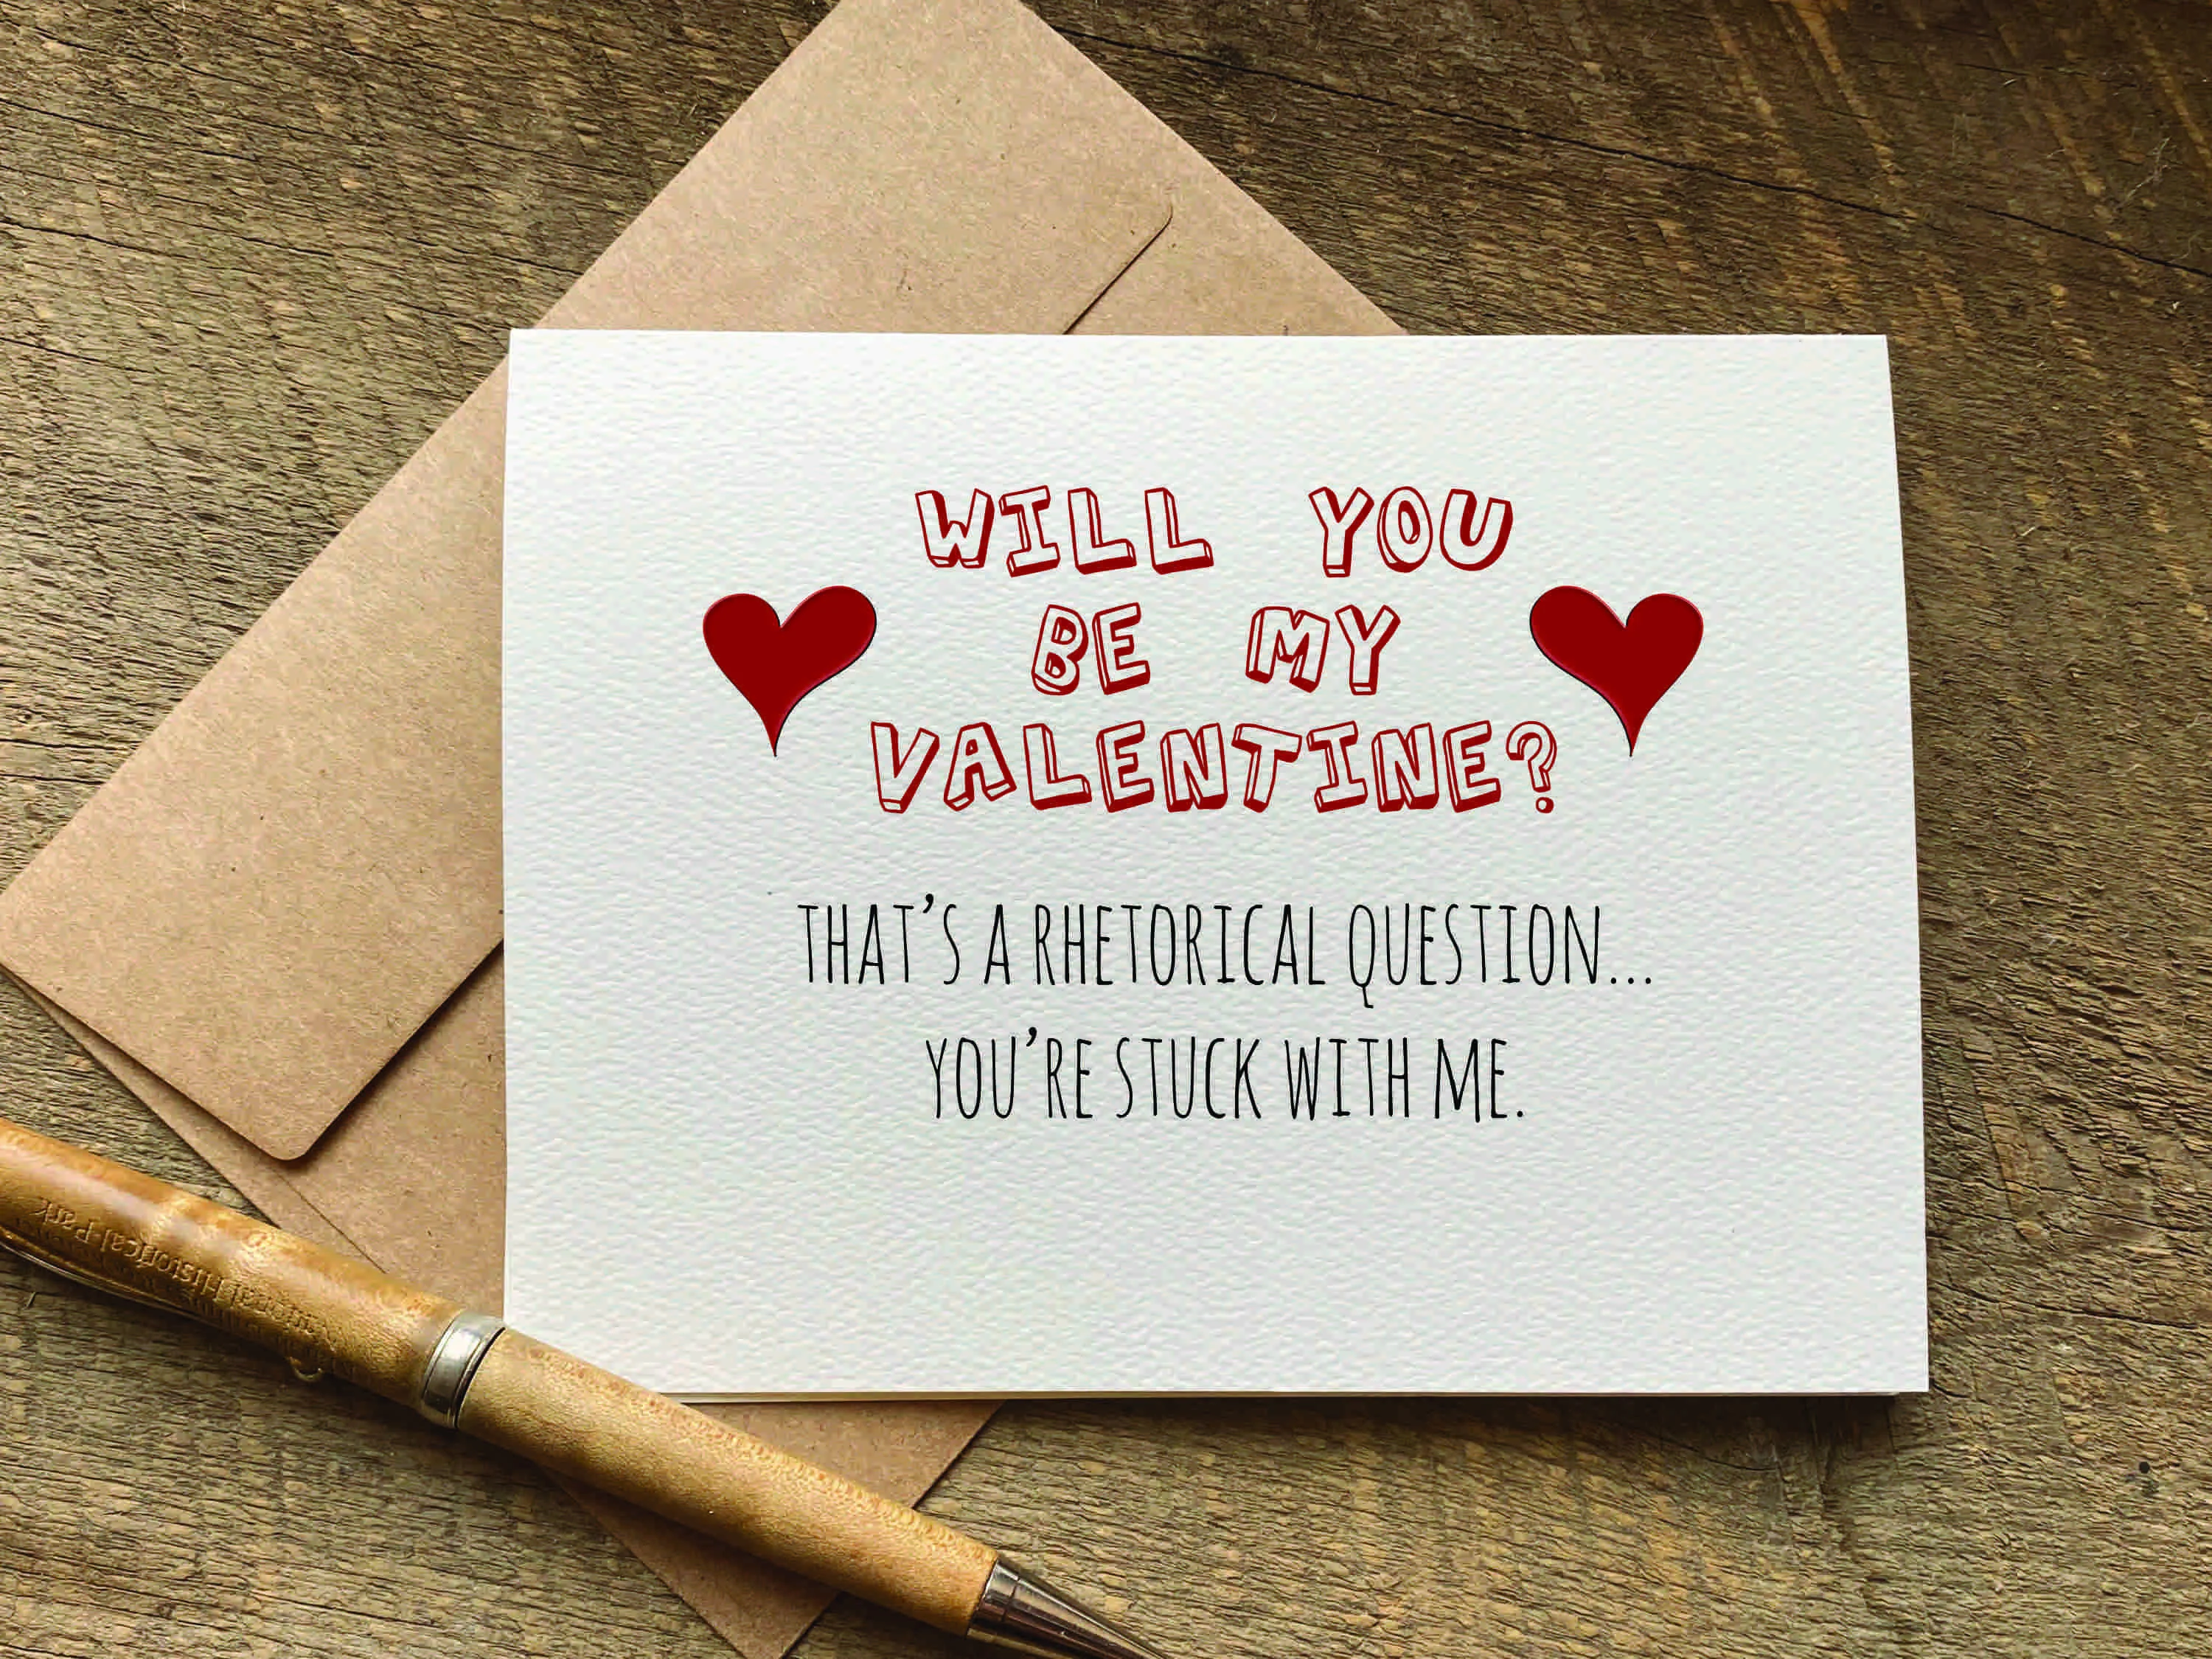 WILL YOU
BE MY
VALENTINE?
THAT'S A RHETORICAL QUESTION...
YOU'RE STUCK WITH ME.
Historical Park